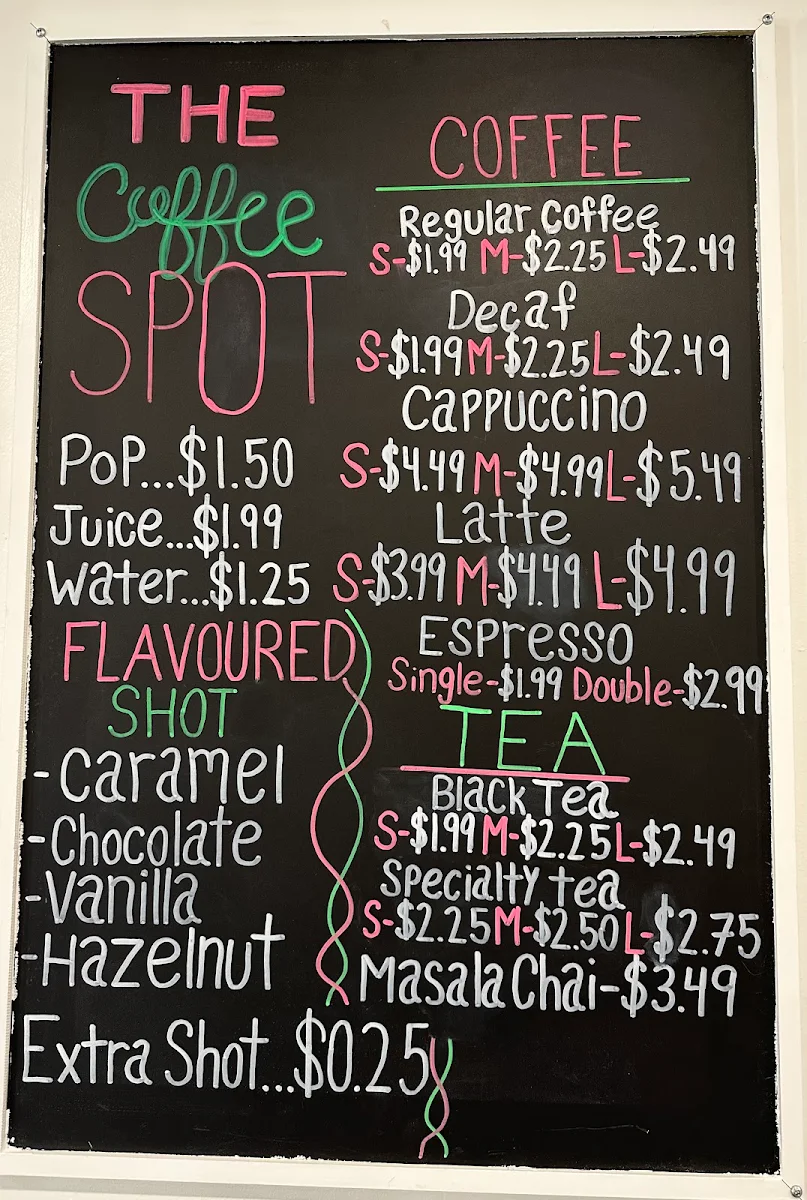 THE
Coffee
SPOT
POP...$1.50
Juice...$1.99
Water...$1.25
FLAVOURED
SHOT
-Caramel
-Chocolate
-Vanilla
-Hazelnut
Extra Shot...$0.25
COFFEE
Regular Coffee
S-$1.99 M-$2.25 L-$2.49
Decaf
S-$1.99 M-$2.25 L-$2.49
Cappuccino
S-$4.49 M-$4.99 L-$5.49
Latte
S-$3.99 M-$4.49 L-$4.99
Espresso
Single-$1.99 Double-$2.99
TEA
Black Tea
S-$1.99 M-$2.25 L-$2.49
Specialty tea
S-$2.25 M-$2.50 L-$2.75
Masala Chai-$3.49